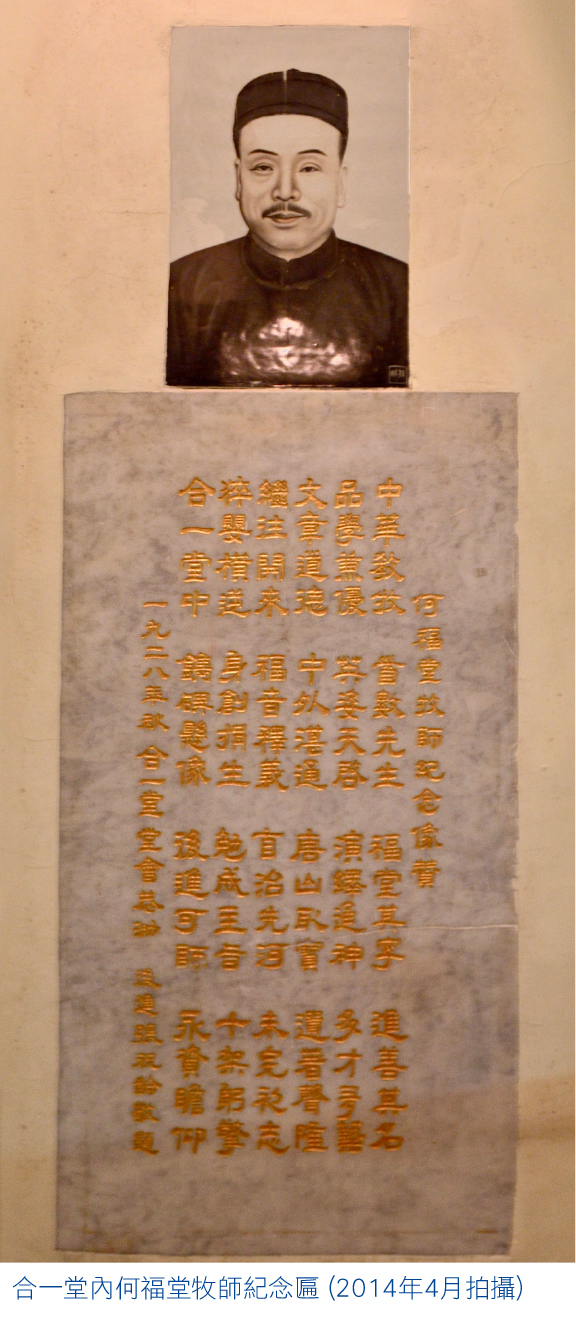 何福堂牧師紀念像贊
中華教牧 首數先生 福堂其字 進善其名
品學兼優 英姿天啓 演繹神 多才多藝
文章道德 中外湛通 唐山取寶 遺著聲隆
繼往開來 福音釋義 治先河 未完初志
猝嬰橫逆 身創捐生 勉成主旨 十架躬擎
合一堂中 鐫碑懸像 後進可師 永資瞻仰
一九二八年秋 合一堂堂會恭泐 後進張祝齡敬題
合一堂內何福堂牧師紀念匾 (2014年4月拍攝)